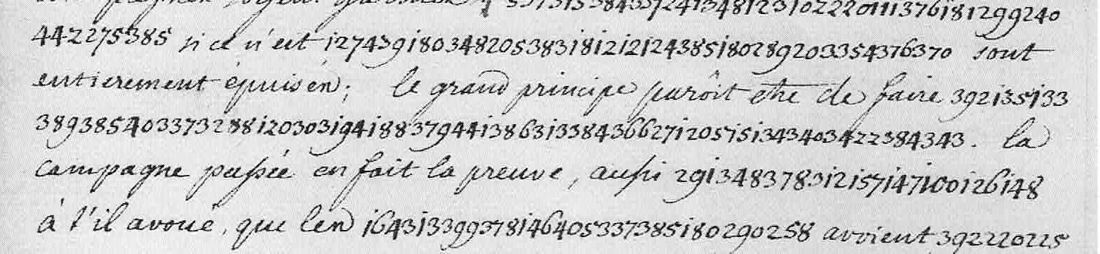 442275385 si ce n'est 127439180348205383181212124385180289203354376370 sont
entierement épuisén; le grand principe paroit etre de faire 392135133
389385403373288120303194188379441386313384366271205151343403422384343. la
campagne passée en fait la preuve, aussi 29134837831215714710012 6148
à t'il avoué, que len 1643133993781464053373851802902 58 avoient 392220225